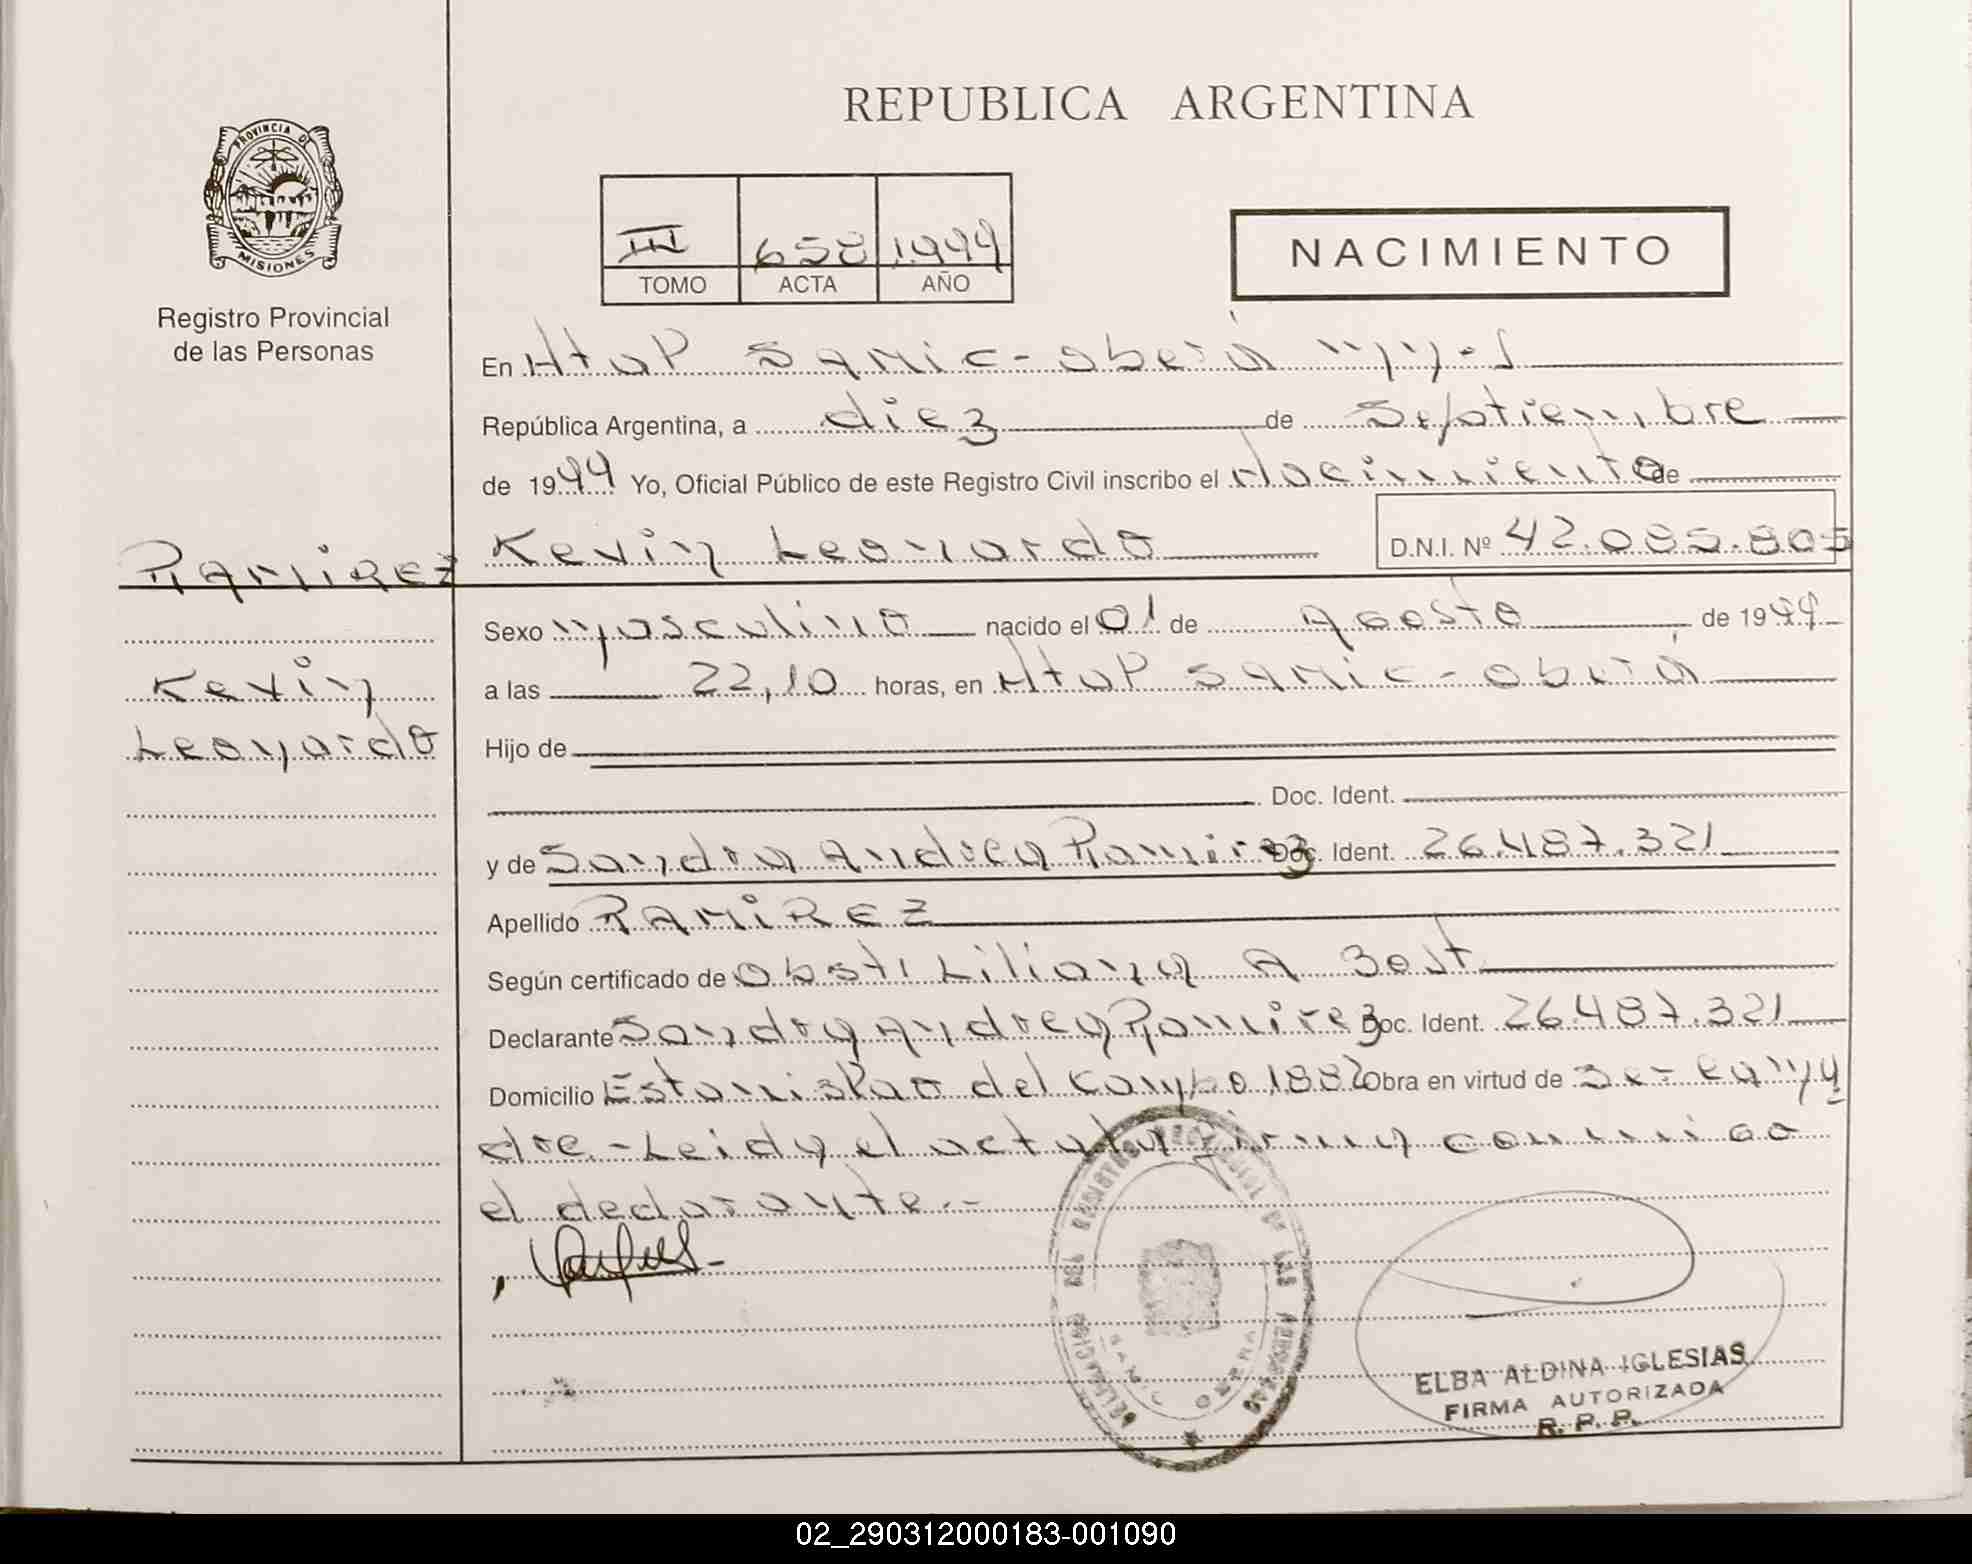 REPUBLICA ARGENTINA
PROVINCIA DE
MISIONES
Registro Provincial
de las Personas
III 658 1.999
TOMO ACTA AÑO
NACIMIENTO
En Htal SAMIC - Oberá Mnes
República Argentina, a diez de Septiembre
de 1999 Yo, Oficial Público de este Registro Civil inscribo el Nacimiento de
RAMIREZ
Kevin Leonardo D.N.I. Nº 42.085.805
Kevin
Leonardo
Sexo Masculino nacido el 01 de Agosto de 1999
a las 22,10 horas, en Htal SAMIC - Oberá
Hijo de
Doc. Ident.
y de Sandra Andrea Ramirez Doc. Ident. 26.487.321
Apellido RAMIREZ
Según certificado de Obst: Liliana A
Declarante Sandra Andrea Ramirez Doc. Ident. 26.487.321
Domicilio Estanislao del Campo 1882 Obra en virtud de Ser la ma
dre.- Leida el acta la firma conmigo
el declarante.-
DELEGACION DEL REGISTRO PROVINCIAL DE LAS PERSONAS
OBERA
ELBA ALDINA IGLESIAS
FIRMA AUTORIZADA
R. P. P.
02_290312000183-001090